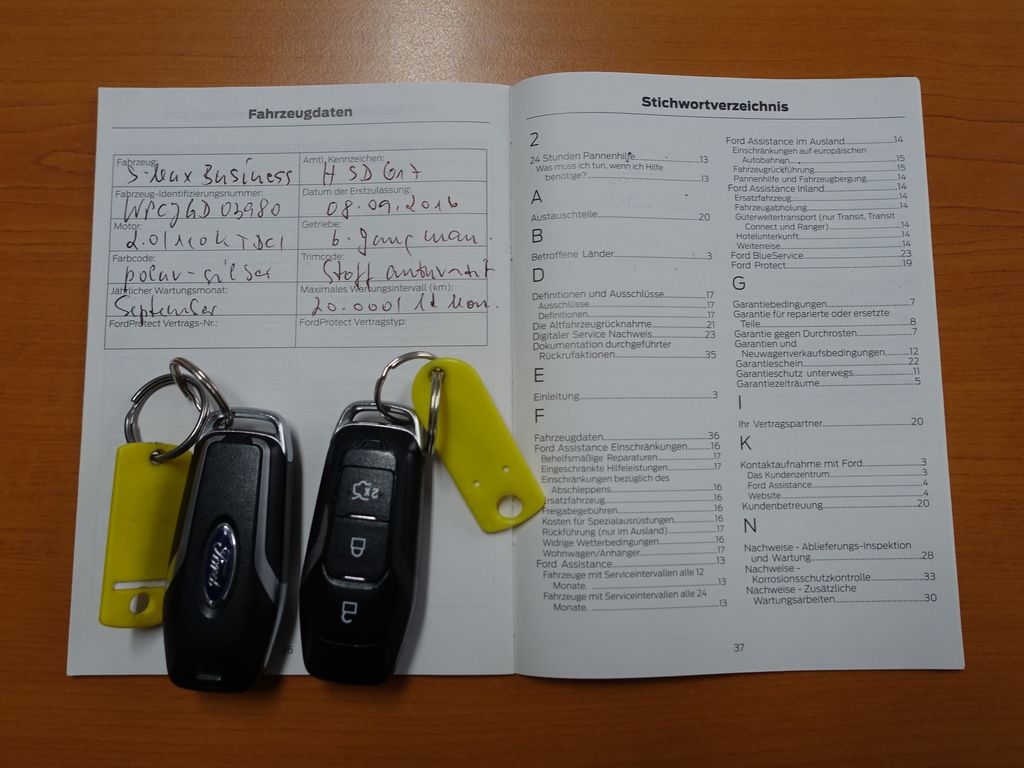 Fahrzeugdaten
Fahrzeug: Amtl. Kennzeichen:
S-Max Business H SD 617
Fahrzeug-Identifizierungsnummer: Datum der Erstzulassung:
08.09.2016
Motor: Getriebe:
2.0/110k TDCi 6. Gang man.
Farbcode: Trimcode:
polar-silber Stoff anthrazit
Jährlicher Wartungsmonat: Maximales Wartungsintervall (km):
September 20.000/ 12 Mon.
FordProtect Vertrags-Nr.: FordProtect Vertragstyp:
Ford
2x
36
Stichwortverzeichnis
2
24 Stunden Pannenhilfe 13
Was muss ich tun, wenn ich Hilfe
benötige? 13
A
Austauschteile 20
B
Betroffene Länder 3
D
Definitionen und Ausschlüsse 17
Ausschlüsse 17
Definitionen 17
Die Altfahrzeugrücknahme 21
Digitaler Service Nachweis 23
Dokumentation durchgeführter
Rückrufaktionen 35
E
Einleitung 3
F
Fahrzeugdaten 36
Ford Assistance Einschränkungen 16
Behelfsmäßige Reparaturen 17
Eingeschränkte Hilfeleistungen 17
Einschränkungen bezüglich des
Abschleppens 16
Ersatzfahrzeug 16
Freigabegebühren 16
Kosten für Spezialausrüstungen 16
Rückführung (nur im Ausland) 17
Widrige Wetterbedingungen 16
Wohnwagen/Anhänger 17
Ford Assistance 13
Fahrzeuge mit Serviceintervallen alle 12
Monate. 13
Fahrzeuge mit Serviceintervallen alle 24
Monate. 13
Ford Assistance im Ausland 14
Einschränkungen auf europäischen
Autobahnen 15
Fahrzeugrückführung 15
Pannenhilfe und Fahrzeugbergung 14
Ford Assistance Inland 14
Ersatzfahrzeug 14
Fahrzeugabholung 14
Güterweitertransport (nur Transit, Transit
Connect und Ranger) 14
Hotelunterkunft 14
Weiterreise 14
Ford BlueService 23
Ford Protect 19
G
Garantiebedingungen 7
Garantie für reparierte oder ersetzte
Teile 8
Garantie gegen Durchrosten 7
Garantien und
Neuwagenverkaufsbedingungen 12
Garantieschein 22
Garantieschutz unterwegs 11
Garantiezeiträume 5
I
Ihr Vertragspartner 20
K
Kontaktaufnahme mit Ford 3
Das Kundenzentrum 3
Ford Assistance 4
Website 4
Kundenbetreuung 20
N
Nachweise - Ablieferungs-Inspektion
und Wartung 28
Nachweise -
Korrosionsschutzkontrolle 33
Nachweise - Zusätzliche
Wartungsarbeiten 30
37